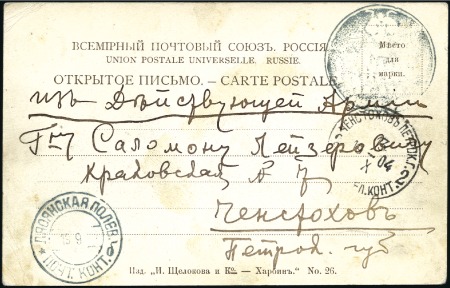 ВСЕМІРНЫЙ ПОЧТОВЫЙ СОЮЗЪ. РОССІЯ
UNION POSTALE UNIVERSELLE. RUSSIE.
Мѣсто
для
марки.
ОТКРЫТОЕ ПИСЬМО. — CARTE POSTALE
изъ Дѣйствующей Арміи
Гну Саломону Лейзеровичу
Краковская № 7
Ченстоховъ
Петрок. губ
ЧЕНСТОХОВЪ ПЕТРОК. Г.
X 04
ЛЯОЯНСКАЯ ПОЛЕВ.
ПОЧТ. КОНТ.
Изд. „И. Щелокова и Ко. — Харбинъ." No. 26.